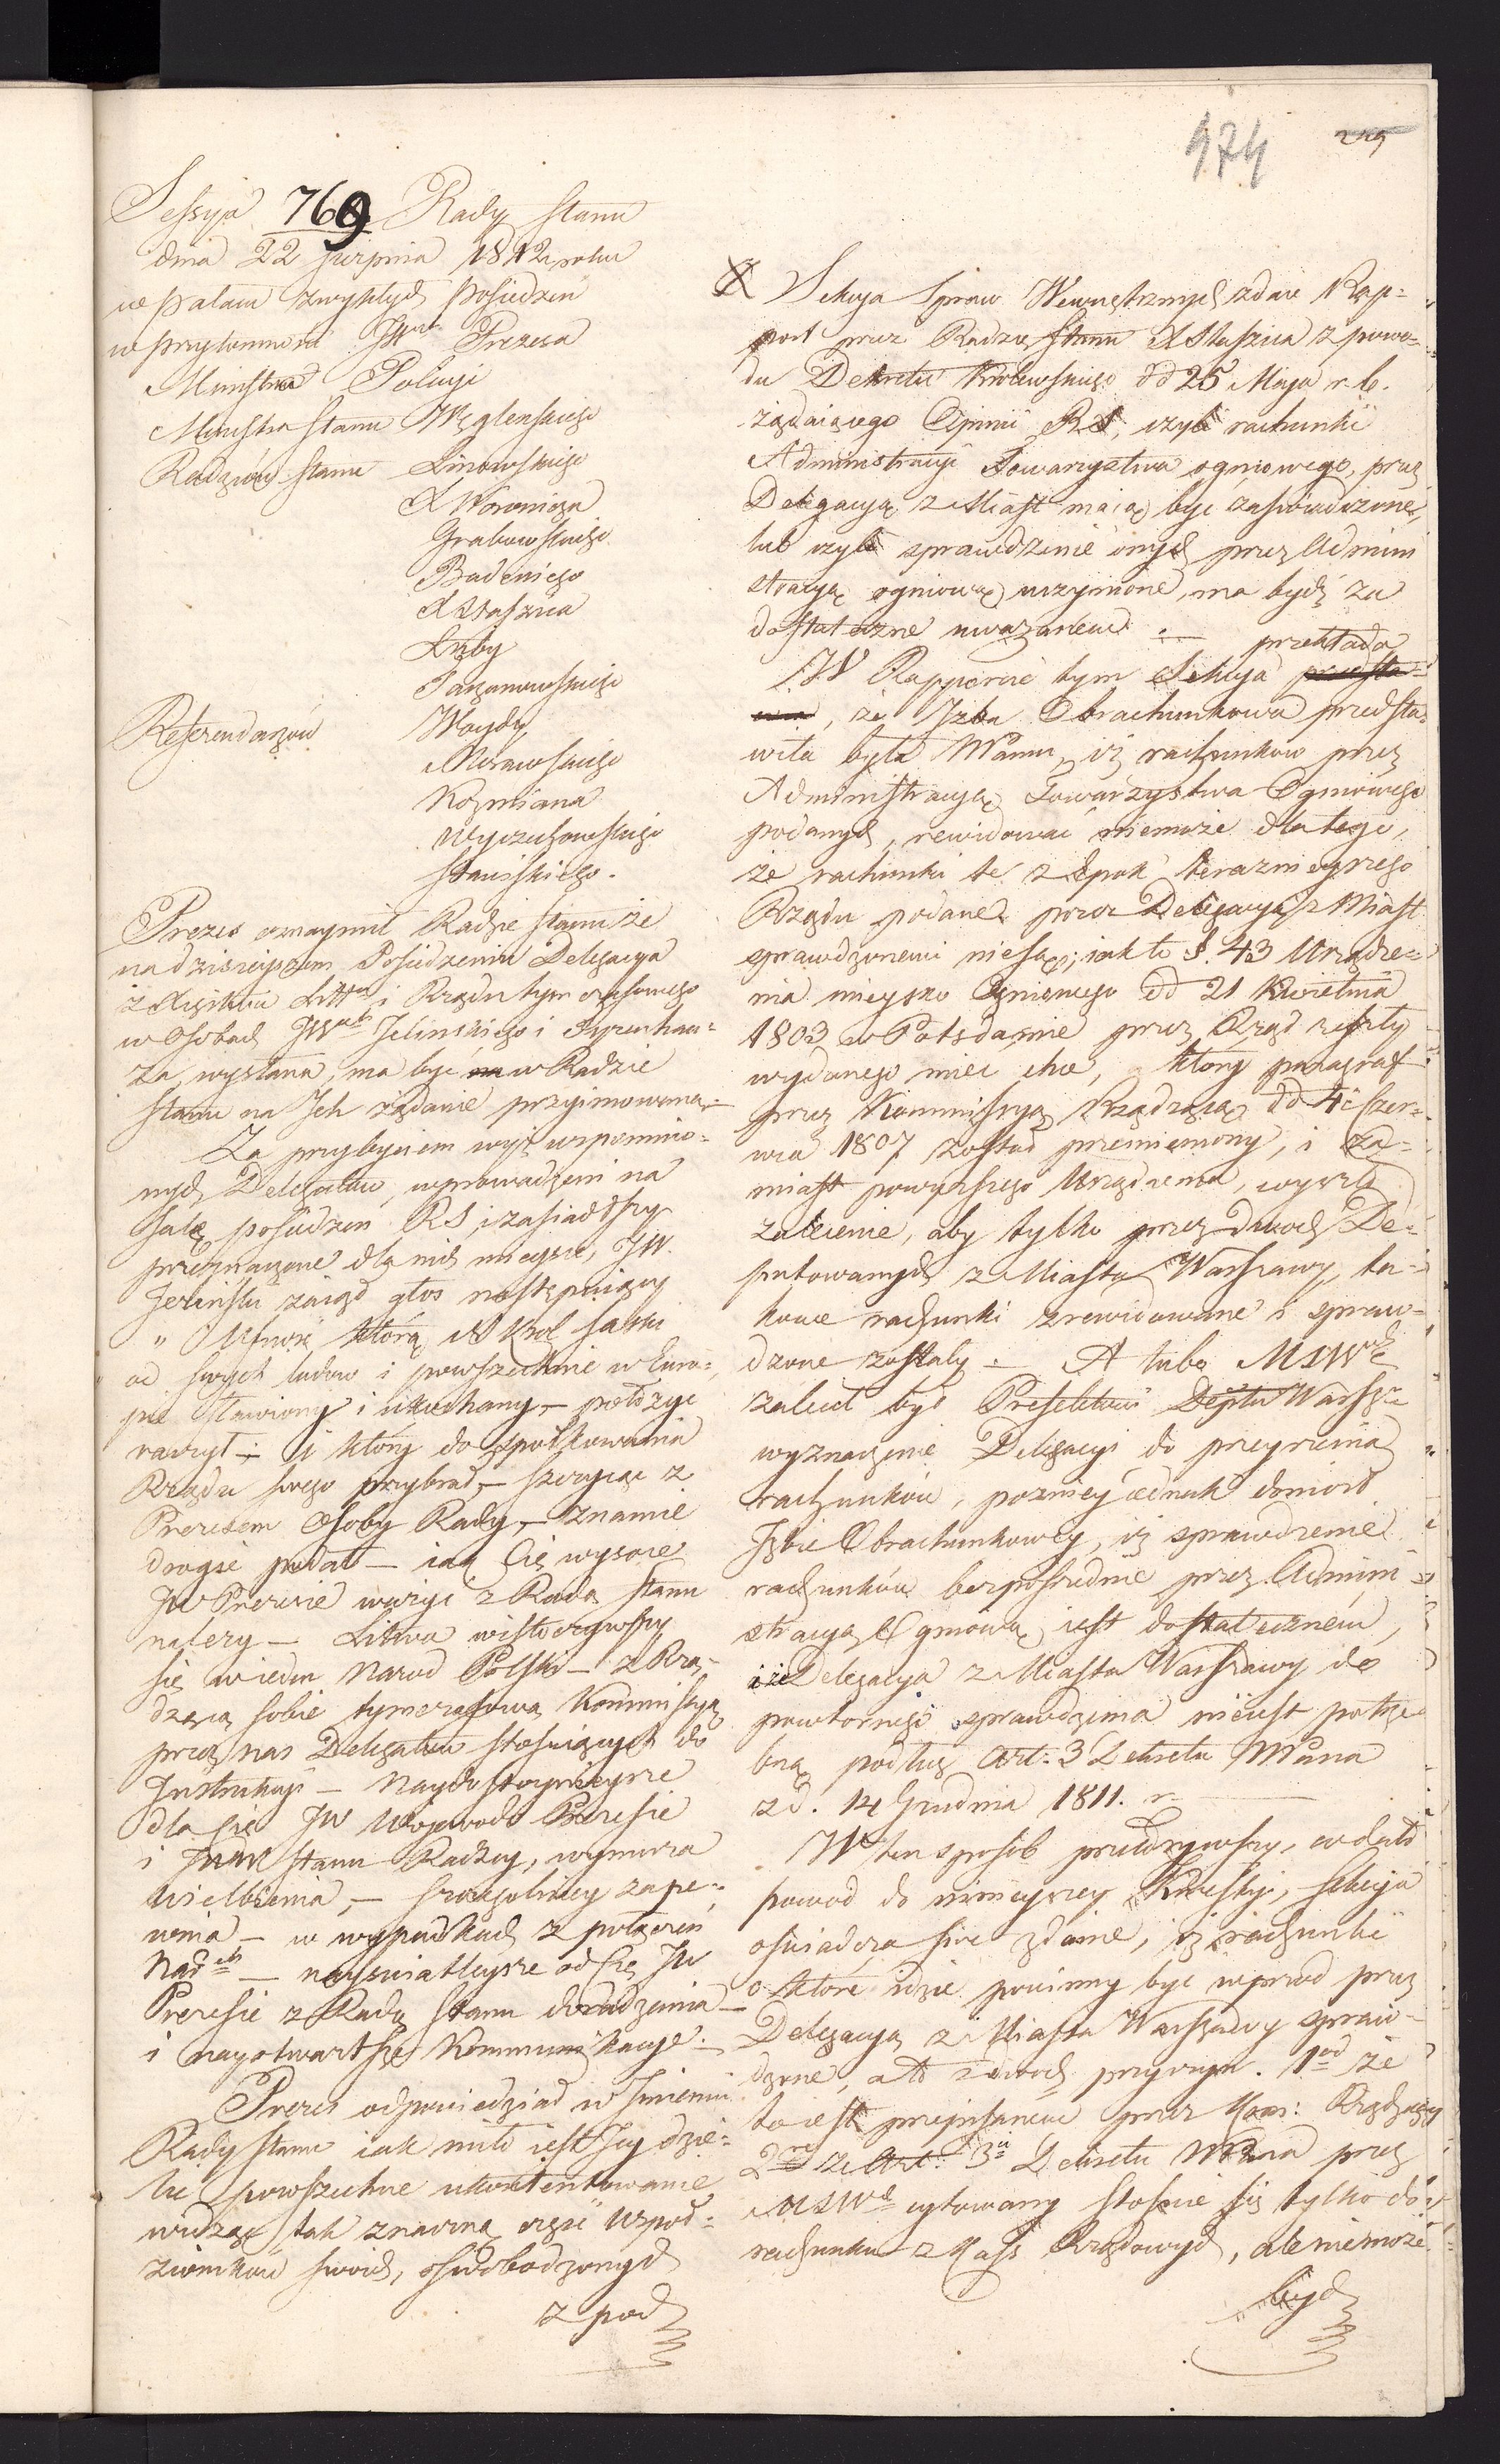 474
Sessya 769 Rady Stanu
dnia 22 Sierpnia 1812 roku
w Pałacu zwykłych Posiedzeń
w przytomności JW Prezesa
Ministra Policyi
Ministra Stanu Węglenskiego
Radzców Stanu Linowskiego
X Woronicza
Grabowskiego
Badeniego
X Staszica
Łuby
Referendarzów Woydy
Morawskiego
Kozmiana
Wyczechowskiego
Prezes oznaymił Radzie Stanu że
na dzisieyszem Posiedzeniu Delegacya
z Xięstwa Litt i Rządu tymczasowego
w Osobach JWch Jelinskiego i
za, wysłana, ma być w Radzie
Stanu na Jch żądanie przyimowana
Za przybyciem wyż wspomnio=
nych Delegatów, wprowadzeni na
Salę posiedzeń RS, i zasiadłszy
przeznaczone dla nich mieysce, JW.
Jelinski zaiął głos następuiący
" Ufność którą Król Saski
od swych ludów i powszechnie w Euro=
pie Sławiony i ukochany — położyć
raczył — i który do spółkowania
Rządu swego przybrał, — szczycąc z
Prezesem Osoby Rady, — znamie
drogie podał — iak Cię wysoce
JW Prezesie ważyć z Radą Stanu
należy — Litwa wistoczywszy
się wieden Narod Polski — z Rzą=
dzącą sobie tymczasową Kommissyą
przez nas Delegatów stosuiących do
Instrukcyi — Naydostoynieysze
dla Cię JW Woiewodo Prezesie
i Stanu Radzcy, wynurza
uwielbienia, — szczegolniey zape=
wnia — w wypadkach z połączeń
— nayswiatleysze od Cię JW
Prezesie z Radą Stanu doradzenia —
i nayotwartszę Kommunikacye. —
Prezes odpowiedział w Jmieniu
Rady Stanu iak miło iest Jey dzie=
lić powszechne ukontentowanie
widząc tak znaczną część Wspoł=
ziomków swoich, oswobodzonych
z pod
X Sekcya Spraw Wewnętrznych zdaie Rap=
port przez Radzcę Stanu X Staszica z powo=
du Dekretu Królewskiego od 25 Maja r. b.
żądaiącego Opinii RS, czyli rachunki
Administracyi Towarzystwa ogniowego, przez
Delegacyą z Miast maią być zaświadczone,
lub czyli sprawdzenie onych przez Admini
stracyą ogniową uczynione, ma bydź za
dostateczne uważanem. — przekłada
W Rapporcie tym Sekcya
, że Jzba Obrachunkowa przedsta=
wiła była WPanu, iż rachunków przez
Administracyą Towarzystwa Ogniowego
podanych, rewidować niemoże dlatego,
że rachunki te z Epok teraznieyszego
Rządu podane przez Delegacyą z Miast
sprawdzonemi niesą; iak to §. 43 Urządze=
nia mieysko Ogniowego od 21 Kwietnia
1803 w Potsdamie przez Rząd zeszły
wydanego mieć chce, który paragraf
przez Kommissyą Rządzącą dd 4 Czer=
wca 1807 został przemieniony, i za=
miast powyższego Urządzenia, wyszło
zalecenie, aby tylko przez dwóch De=
putowanych z Miasta Warszawy, ta=
kowe rachunki zrewidowane i spraw=
dzone zostały. — A lubo MSWe
zalecił był Prefektowi Deptu Warszu
wyznaczenie Delegacyi do przeyrzenia
rachunków, poźniey iednak doniosł
Jzbie Obrachunkowey, iż sprawdzenie
rachunków bezpośrednie przez Admini=
stracyą Ogniową iest dostatecznem,
i że Delegacya z Miasta Warszawy do
powtórnego sprawdzenia nieiest potrze
bną podług Art. 3 Dekretu WPana
z d. 14 Grudnia 1811. r.
W ten sposób przełożywszy, co dało
powód do ninieyszey Kwestyi, Sekcya
oświadcza swe zdanie, iż rachunki
o które idzie powinny być wprzód przez
Delegacyą z Miasta Warszawy spraw=
dzone, a to z dwóch przyczyn. 1od że
to iest przepisanem przez Kom: Rządzącą
2re że Art. 3ci Dekretu WPana przez
MSWe cytowany stosuie się tylko do
rachunku z Kass Rządowych, ale niemoże
bydź